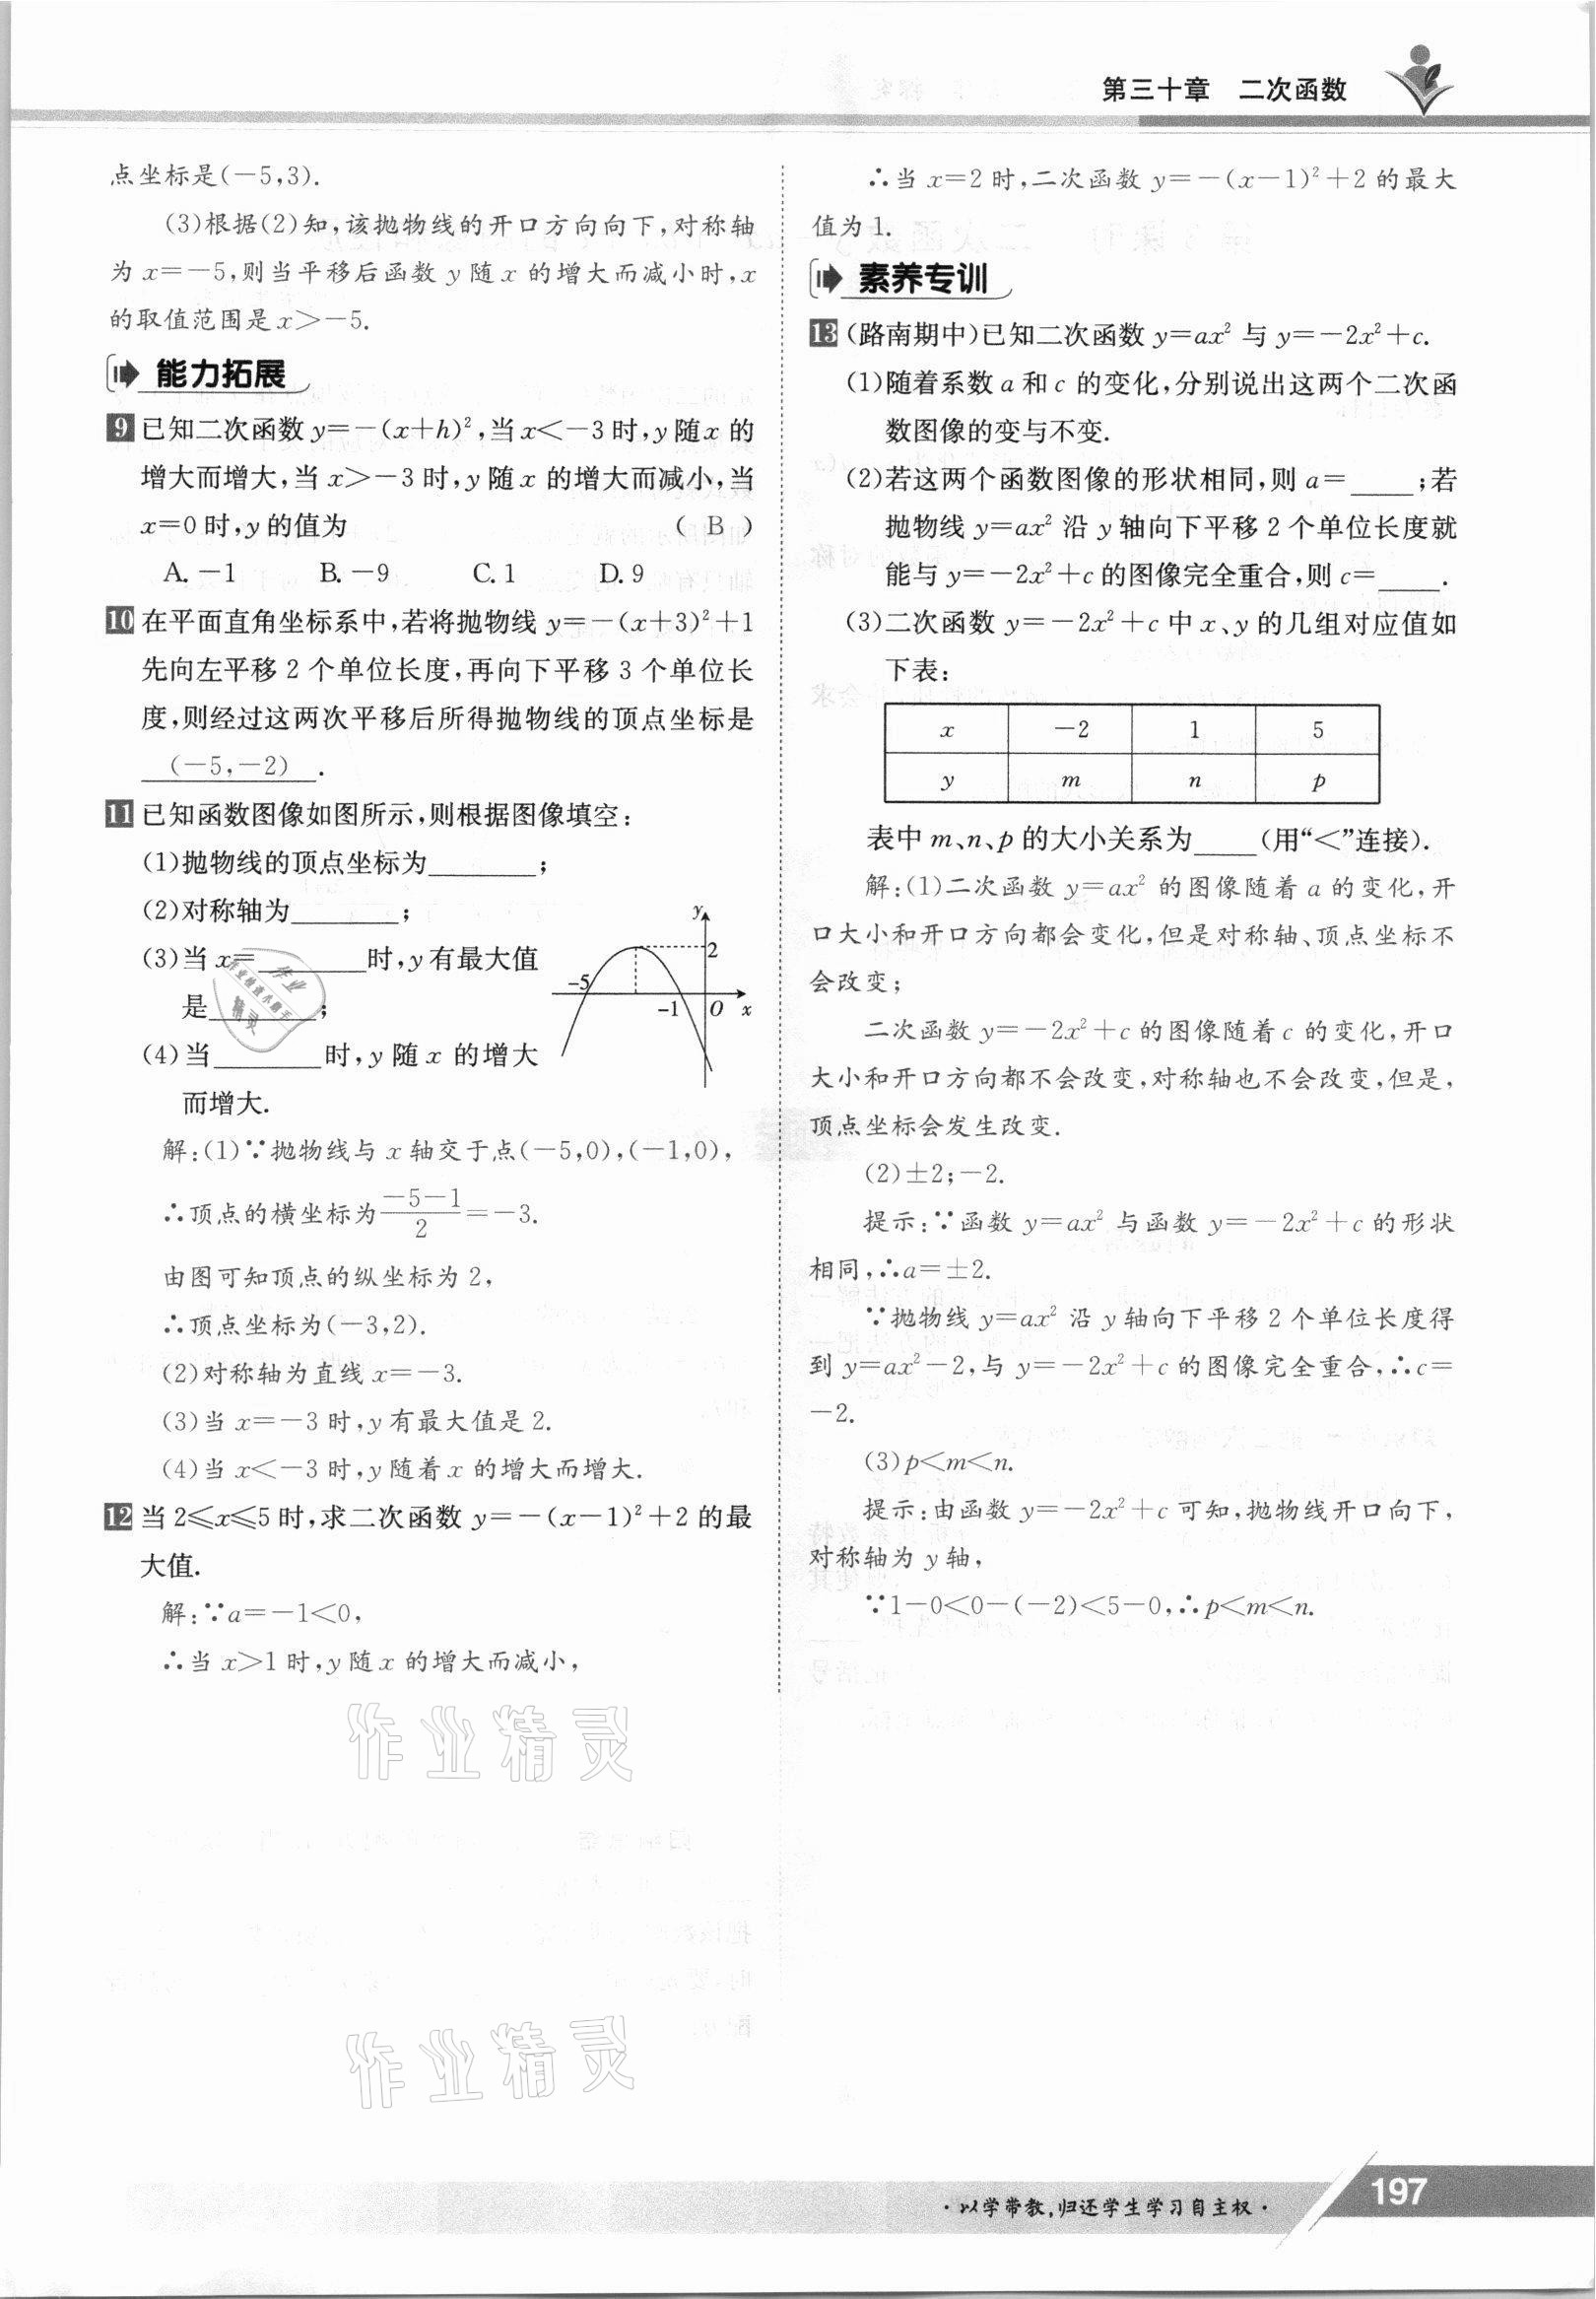 第三十章 二次函数
点坐标是(-5,3).
(3)根据(2)知,该抛物线的开口方向向下,对称轴
为 x=-5,则当平移后函数 y 随 x 的增大而减小时,x
的取值范围是 x>-5.
能力拓展
9 已知二次函数 y=-(x+h)²,当 x<-3 时,y 随 x 的
增大而增大,当 x>-3 时,y 随 x 的增大而减小,当
x=0 时,y 的值为 ( B )
A. -1 B. -9 C. 1 D. 9
10 在平面直角坐标系中,若将抛物线 y=-(x+3)²+1
先向左平移 2 个单位长度,再向下平移 3 个单位长
度,则经过这两次平移后所得抛物线的顶点坐标是
(-5,-2) .
11 已知函数图像如图所示,则根据图像填空:
(1)抛物线的顶点坐标为________;
(2)对称轴为________;
(3)当 x=________时,y 有最大值
是________;
(4)当________时,y 随 x 的增大
而增大.
y
2
-5
-1 O x
解:(1)∵抛物线与 x 轴交于点(-5,0),(-1,0),
∴顶点的横坐标为 \frac{-5-1}{2}=-3.
由图可知顶点的纵坐标为 2,
∴顶点坐标为(-3,2).
(2)对称轴为直线 x=-3.
(3)当 x=-3 时,y 有最大值是 2.
(4)当 x<-3 时,y 随着 x 的增大而增大.
12 当 2⩽x⩽5 时,求二次函数 y=-(x-1)²+2 的最
大值.
解:∵a=-1<0,
∴当 x>1 时,y 随 x 的增大而减小,
∴当 x=2 时,二次函数 y=-(x-1)²+2 的最大
值为 1.
素养专训
13 (路南期中)已知二次函数 y=ax² 与 y=-2x²+c.
(1)随着系数 a 和 c 的变化,分别说出这两个二次函
数图像的变与不变.
(2)若这两个函数图像的形状相同,则 a=____;若
抛物线 y=ax² 沿 y 轴向下平移 2 个单位长度就
能与 y=-2x²+c 的图像完全重合,则 c=____.
(3)二次函数 y=-2x²+c 中 x、y 的几组对应值如
下表:
x -2 1 5
y m n p
表中 m、n、p 的大小关系为____(用“<”连接).
解:(1)二次函数 y=ax² 的图像随着 a 的变化,开
口大小和开口方向都会变化,但是对称轴、顶点坐标不
会改变;
二次函数 y=-2x²+c 的图像随着 c 的变化,开口
大小和开口方向都不会改变,对称轴也不会改变,但是,
顶点坐标会发生改变.
(2)±2;-2.
提示:∵函数 y=ax² 与函数 y=-2x²+c 的形状
相同,∴a=±2.
∵抛物线 y=ax² 沿 y 轴向下平移 2 个单位长度得
到 y=ax²-2,与 y=-2x²+c 的图像完全重合,∴c=
-2.
(3)p<m<n.
提示:由函数 y=-2x²+c 可知,抛物线开口向下,
对称轴为 y 轴,
∵1-0<0-(-2)<5-0,∴p<m<n.
作业精灵
作业精灵
·以学带教,归还学生学习自主权·
197